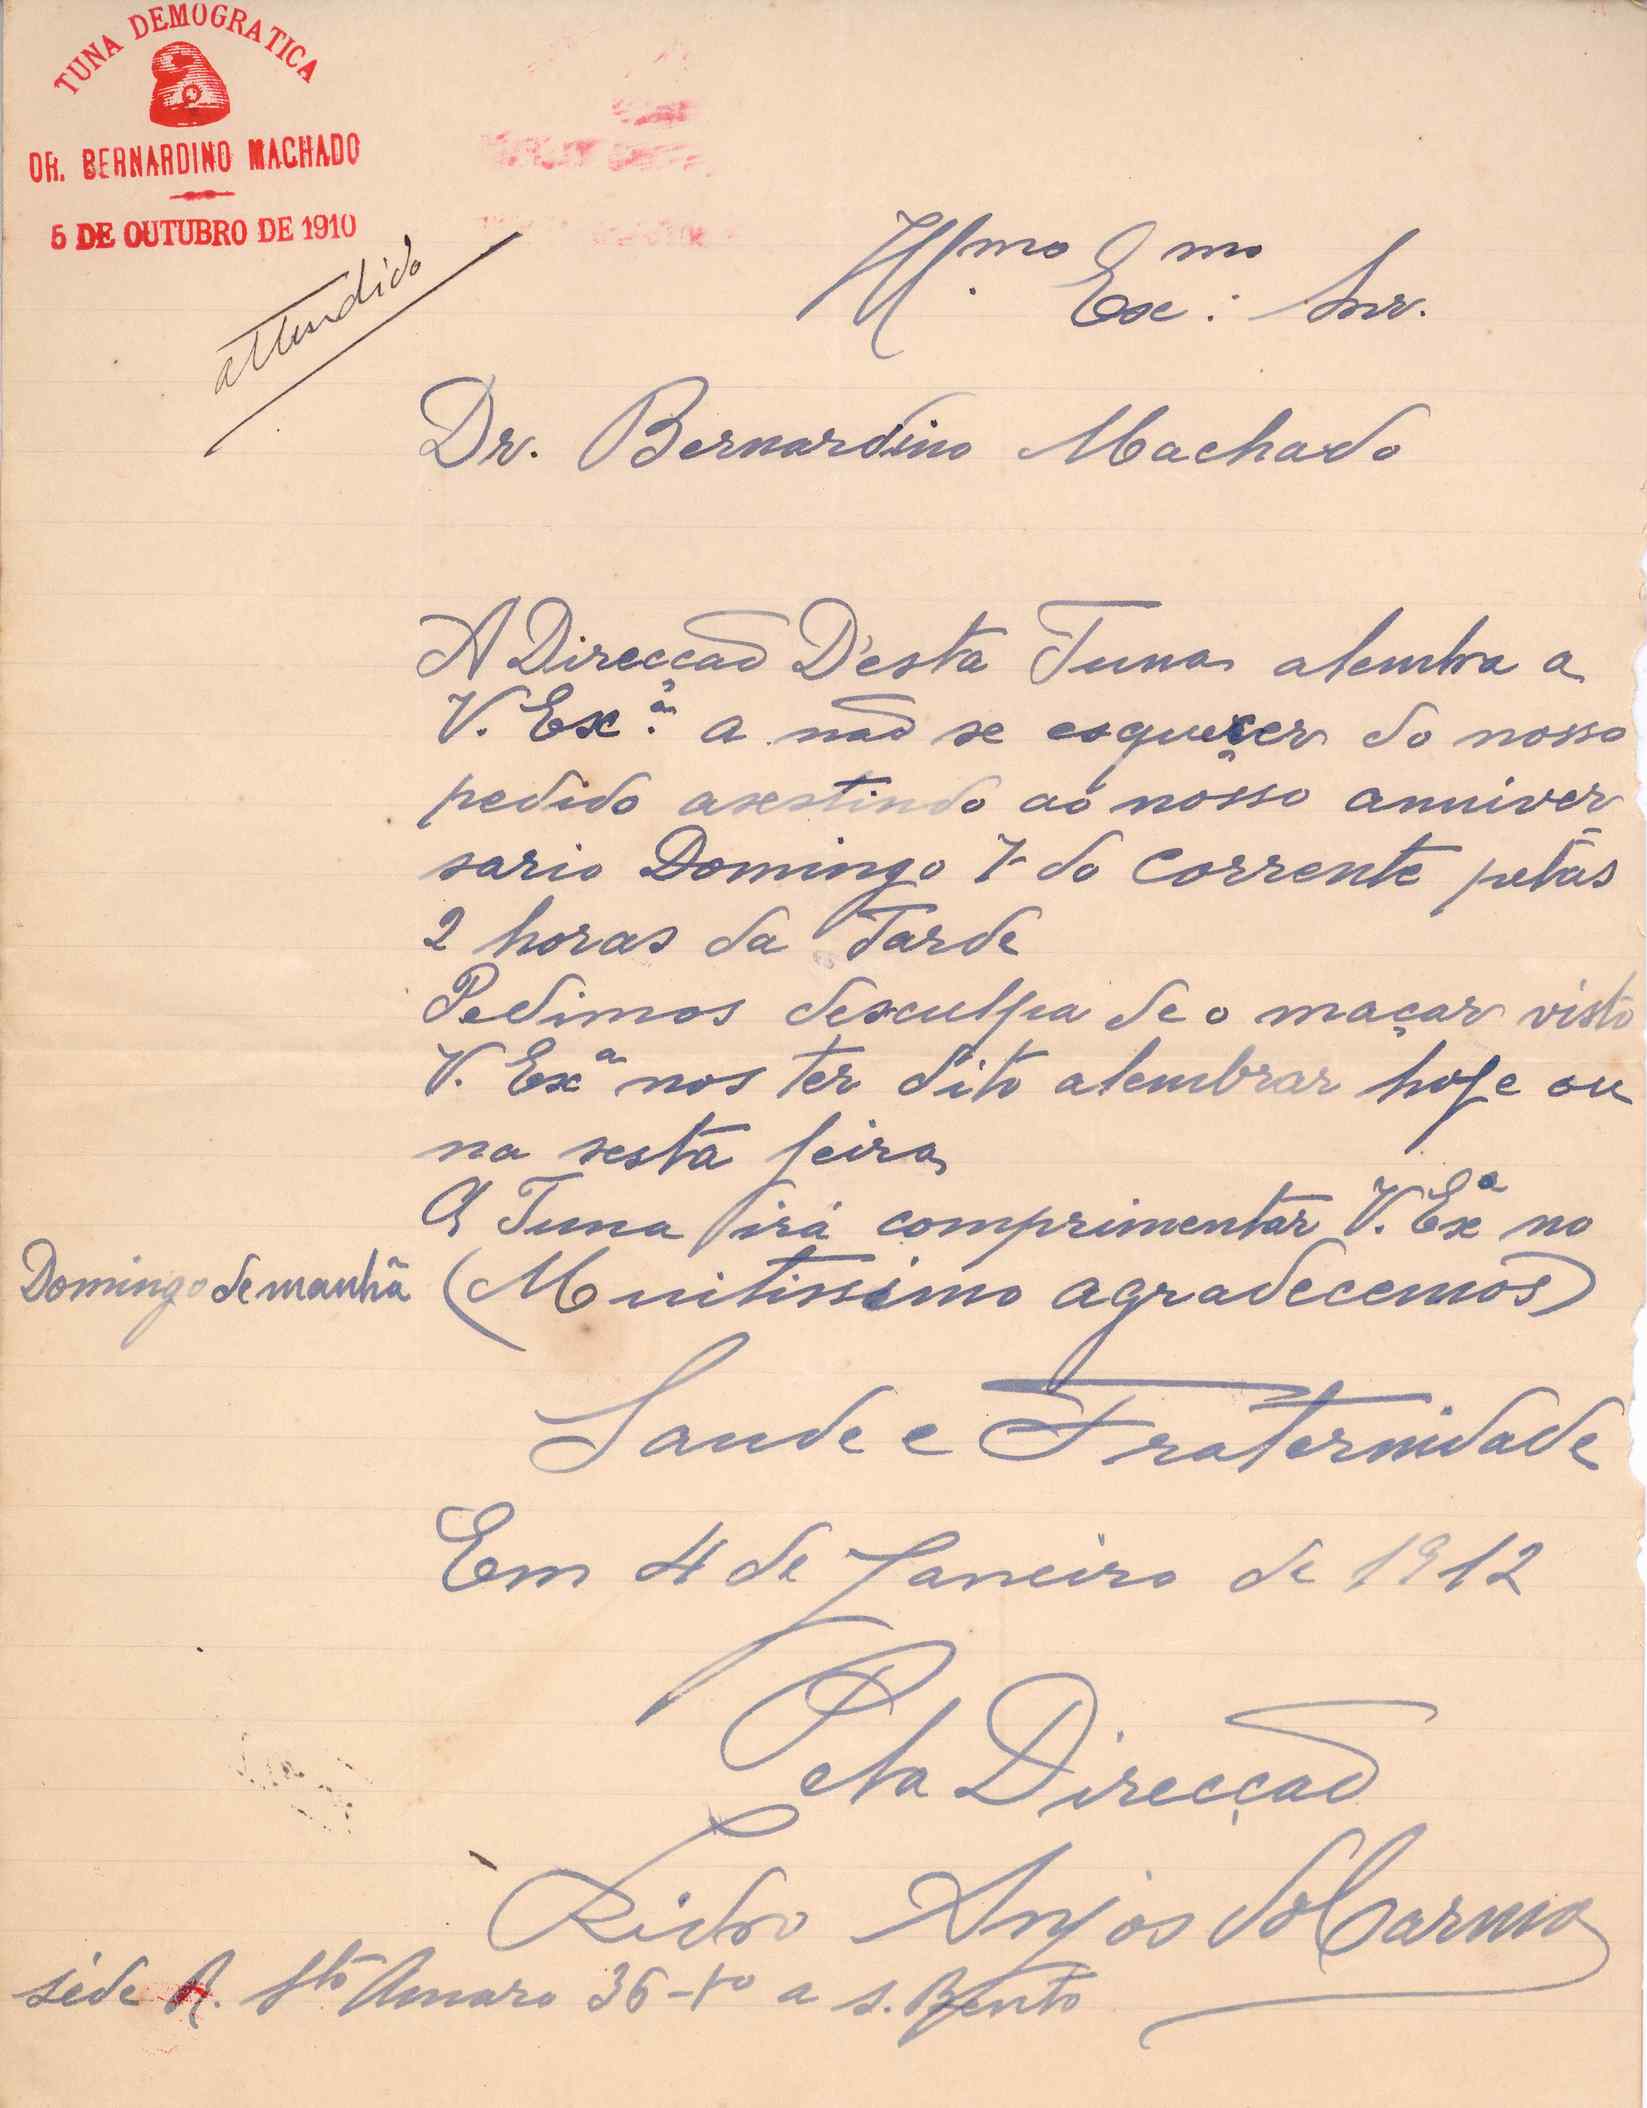 TUNA DEMOGRATICA
DR. BERNARDINO MACHADO
5 DE OUTUBRO DE 1910
attendido
Ill.mo Ex.mo Snr.
Dr. Bernardino Machado
A Direcção D'esta Tuna alembra a
V. Ex.ª a não se esquecer do nosso
pedido asestindo ao nosso anniver
sario Domingo 7 do corrente pelas
2 horas da Tarde
Pedimos desculpa de o maçar visto
V. Exª nos ter dito alembrar hoje ou
na sesta feira
A Tuna irá comprimentar V. Exª no
Domingo de manhã (Muitissimo agradecemos)
Saude e Fraternidade
Em 4 de Janeiro de 1912
Pela Direcção
Anjos do Carmo
séde R. Stº Amaro 36-1º a S. Bento